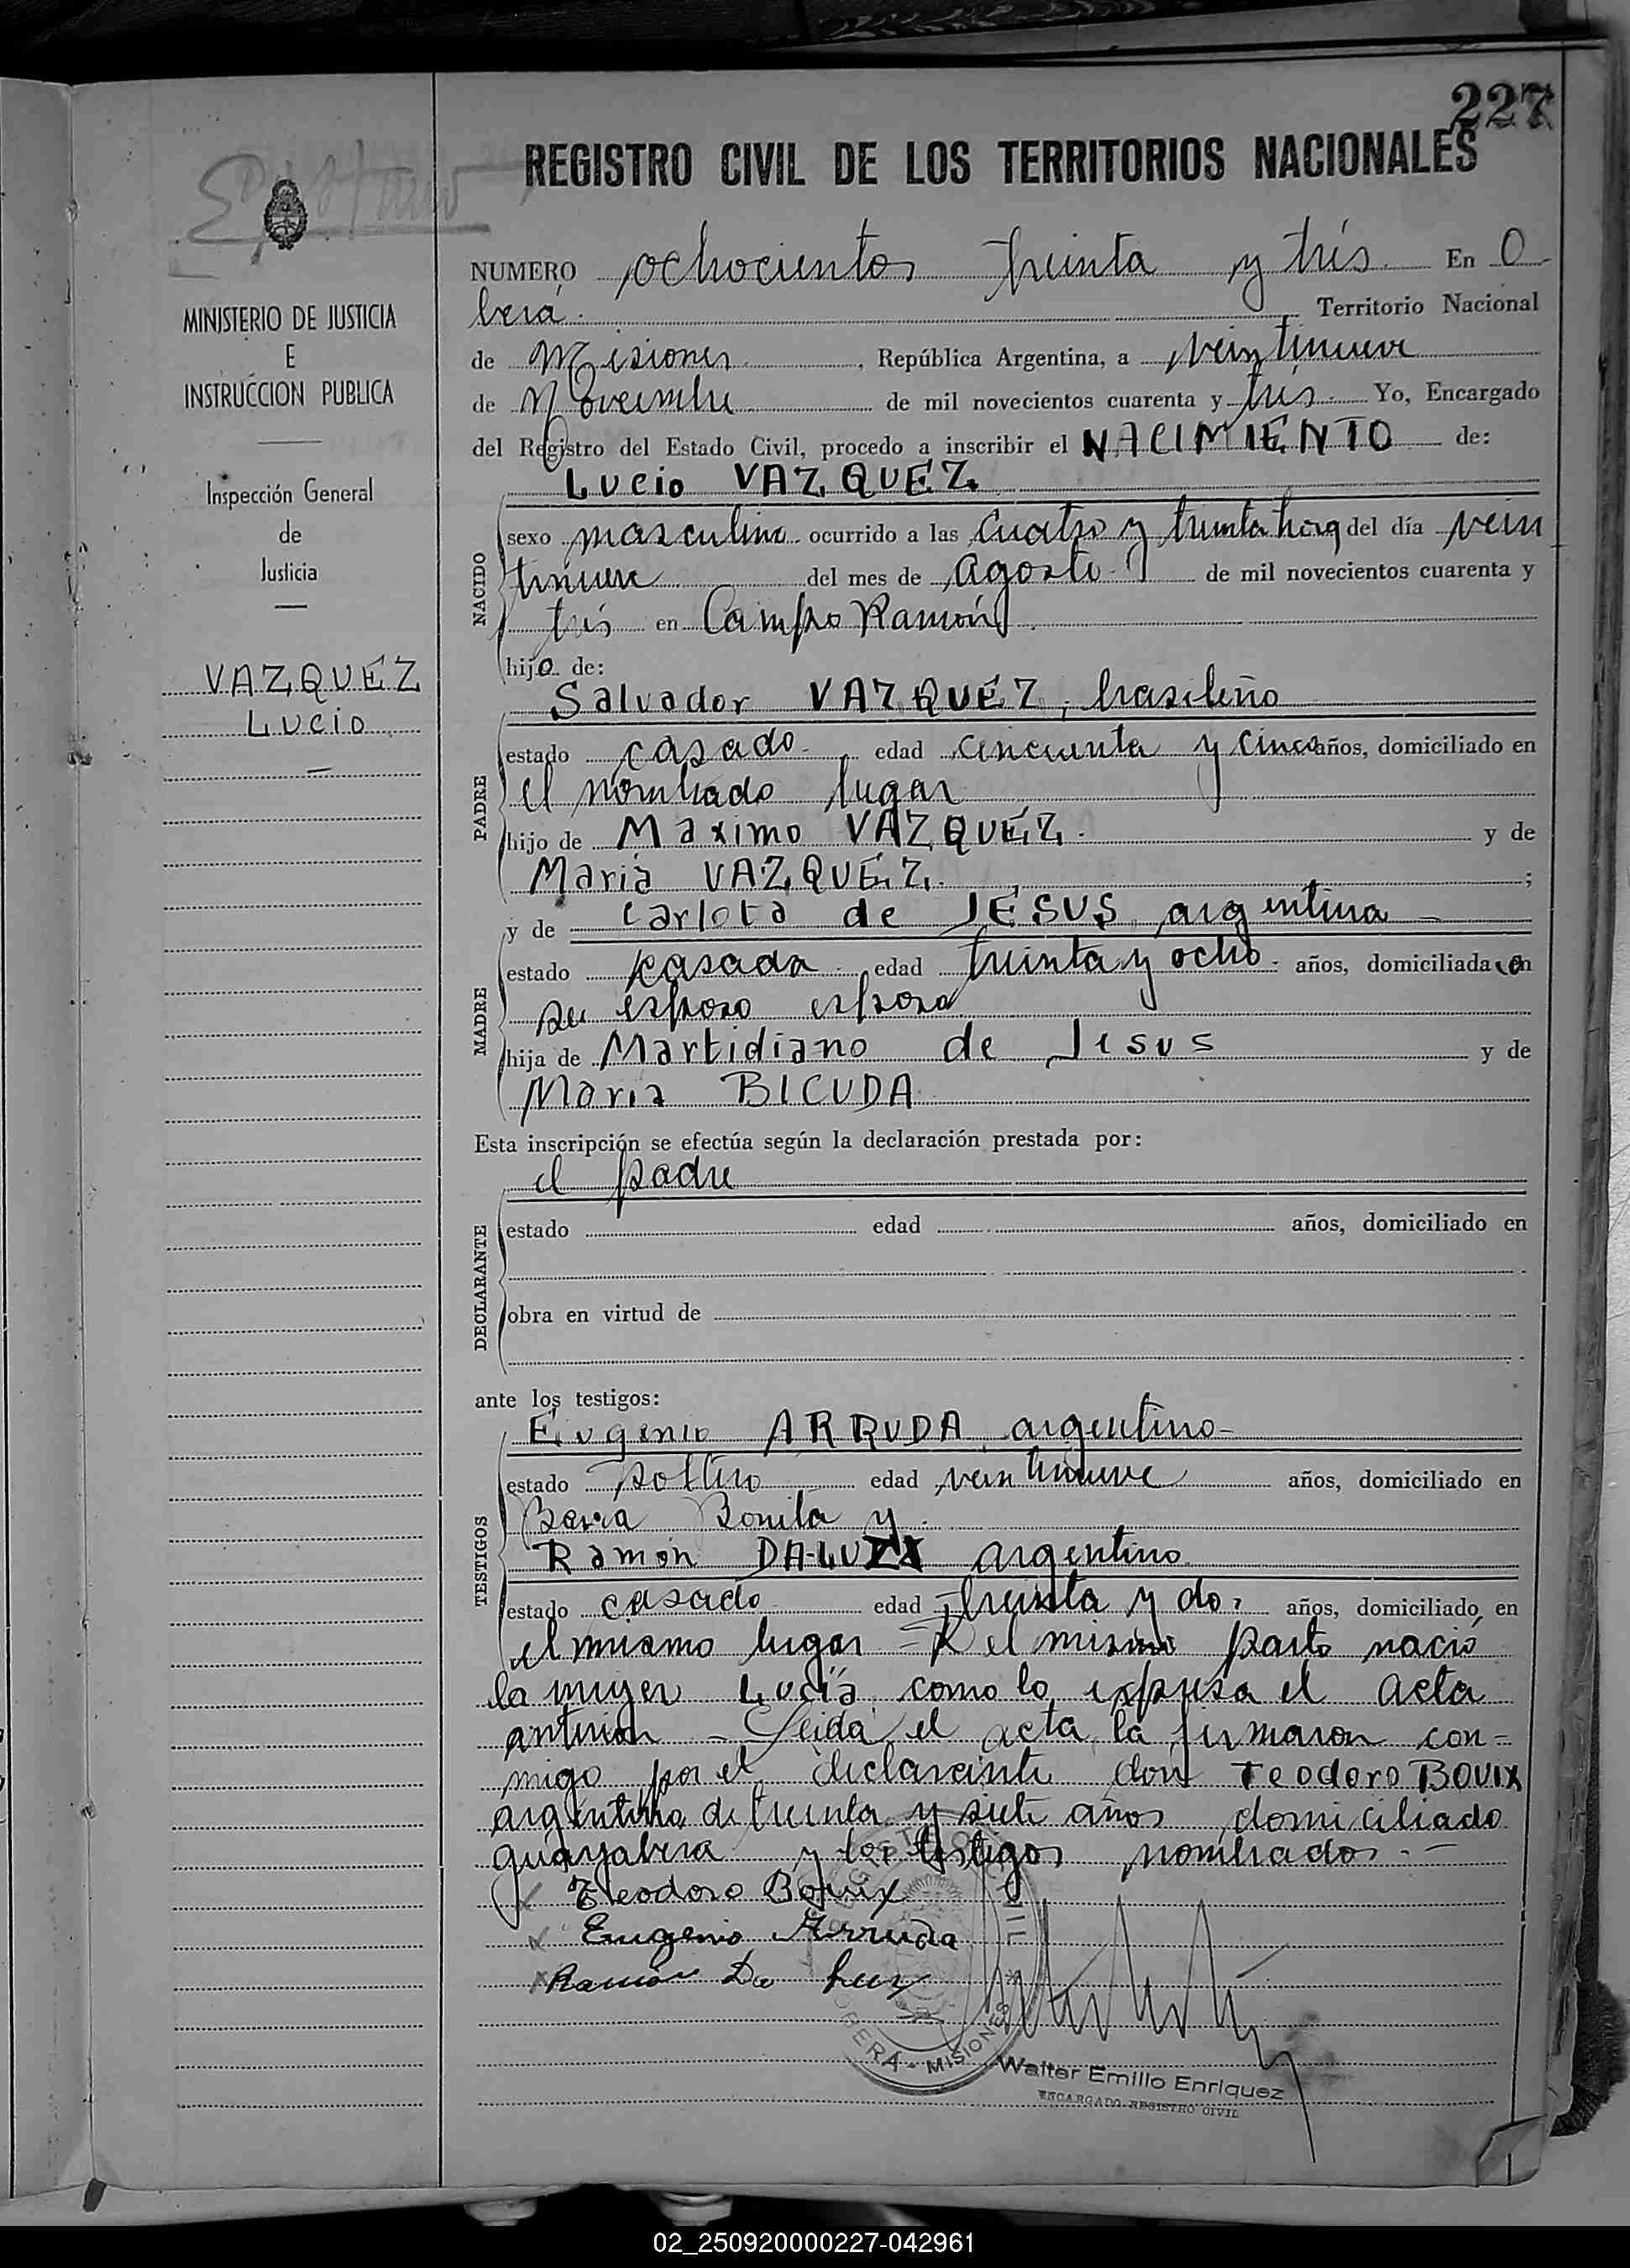 227
REGISTRO CIVIL DE LOS TERRITORIOS NACIONALES
NUMERO ochocientos treinta y trés. En O
berá. Territorio Nacional
de Misiones, República Argentina, a veintinueve
de Noviembre de mil novecientos cuarenta y trés. Yo, Encargado
del Registro del Estado Civil, procedo a inscribir el NACIMIENTO de:
Lucio VAZQUEZ.
NACIDO
sexo masculino ocurrido a las cuatro y treinta horas del día vein
tinueve del mes de Agosto de mil novecientos cuarenta y
trés en Campo Ramón.
hijo de:
Salvador VAZQUEZ, brasileño
PADRE
estado casado edad cincuenta y cinco años, domiciliado en
el nombrado lugar
hijo de Maximo VAZQUEZ. y de
Maria VAZQUEZ. ;
y de Carlota de JESUS, argentina
MADRE
estado casada edad treinta y ocho años, domiciliada en
su esposo esposa
hija de Martidiano de Jesus y de
Maria BICUDA
Esta inscripción se efectúa según la declaración prestada por:
el padre
DECLARANTE
estado edad años, domiciliado en
obra en virtud de
ante los testigos:
Eugenio ARRUDA, argentino-
TESTIGOS
estado soltero edad veintinueve años, domiciliado en
Barra Bonita y
Ramón DA-LUZ argentino
estado casado edad treinta y dos años, domiciliado en
el mismo lugar = el mismo parto nació
la mujer Lucia, como lo expresa el acta
anterior - Leida el acta, la firmaron con-
migo por el declarante don Teodoro BOUIX
argentino de treinta y siete años domiciliado
guayabera y los testigos nombrados. -
Teodoro Bouix
Eugenio Arruda
Ramón Da Luz
REGISTRO CIVIL
OBERÁ - MISIONES
Walter Emilio Enriquez
ENCARGADO REGISTRO CIVIL
MINISTERIO DE JUSTICIA
E
INSTRUCCION PUBLICA
Inspección General
de
Justicia
VAZQUEZ
Lucio
02_250920000227-042961